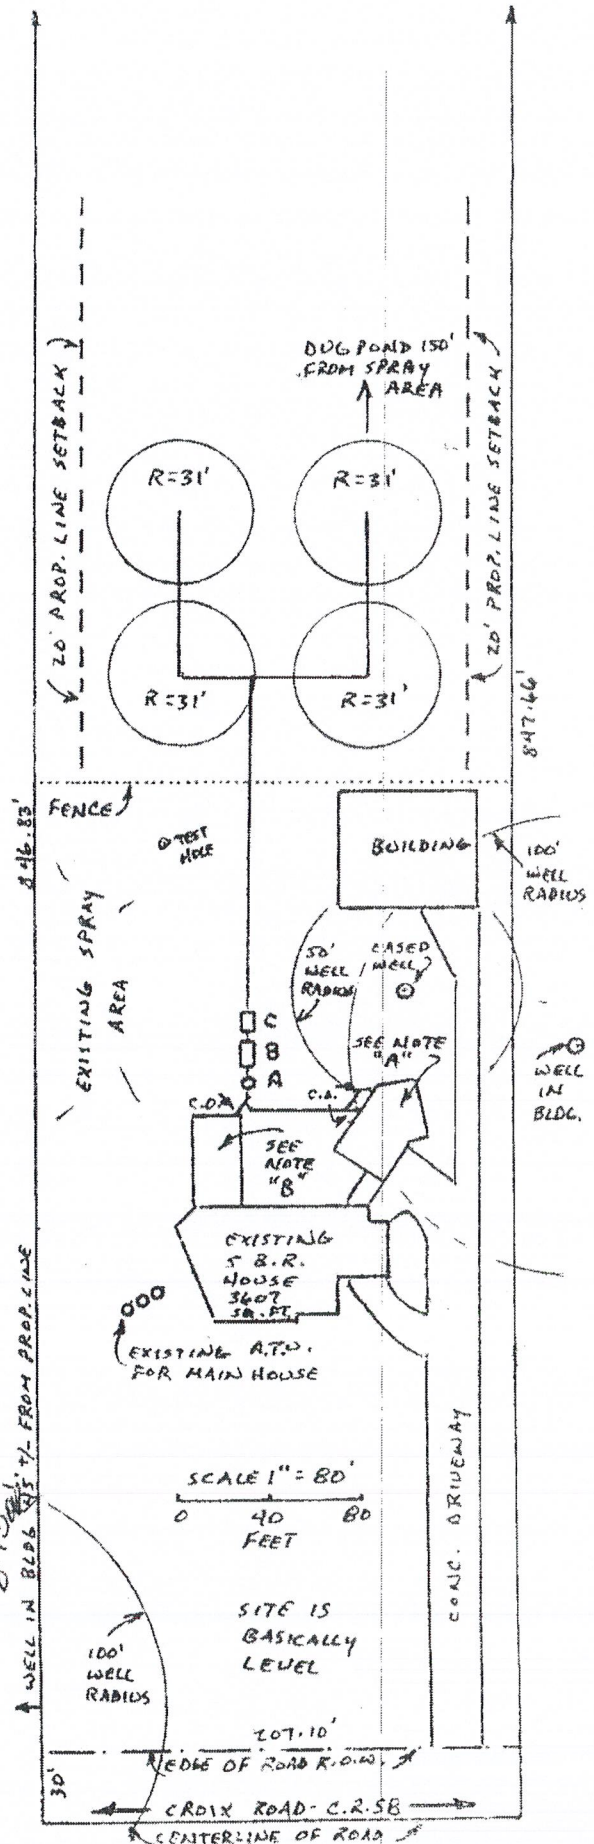 DUG POND 150'
FROM SPRAY
AREA
20' PROP. LINE SETBACK
20' PROP. LINE SETBACK
R=31'
R=31'
R=31'
R=31'
847.66'
846.83'
FENCE
TEST
HOLE
BUILDING
100'
WELL
RADIUS
EXISTING SPRAY
AREA
50'
WELL
RADIUS
CASED
WELL
C
B
A
SEE NOTE
"A"
WELL
IN
BLDG.
C.O.
C.O.
SEE
NOTE
"B"
EXISTING
5 B.R.
HOUSE
3607
SQ. FT.
EXISTING A.T.U.
FOR MAIN HOUSE
WELL IN BLDG +/- FROM PROP. LINE
SCALE 1" = 80'
0 40 80
FEET
CONC. DRIVEWAY
SITE IS
BASICALLY
LEVEL
100'
WELL
RADIUS
207.10'
EDGE OF ROAD R.O.W.
30'
CROIX ROAD - C.R. 58
CENTERLINE OF ROAD